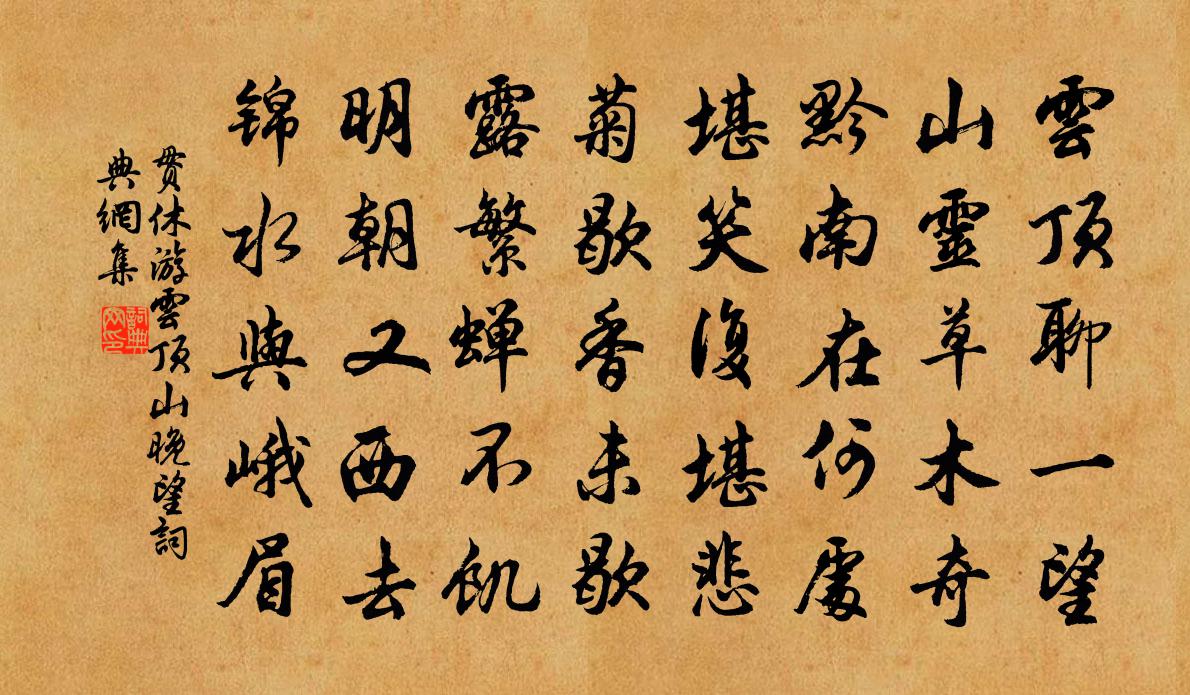 雲頂聊一望
山靈草木奇
黔南在何處
堪笑復堪悲
菊歇香未歇
露繁蝉不飢
明朝又西去
锦水與峨眉
贯休游雲頂山晚望詞
典網集
詞典网印